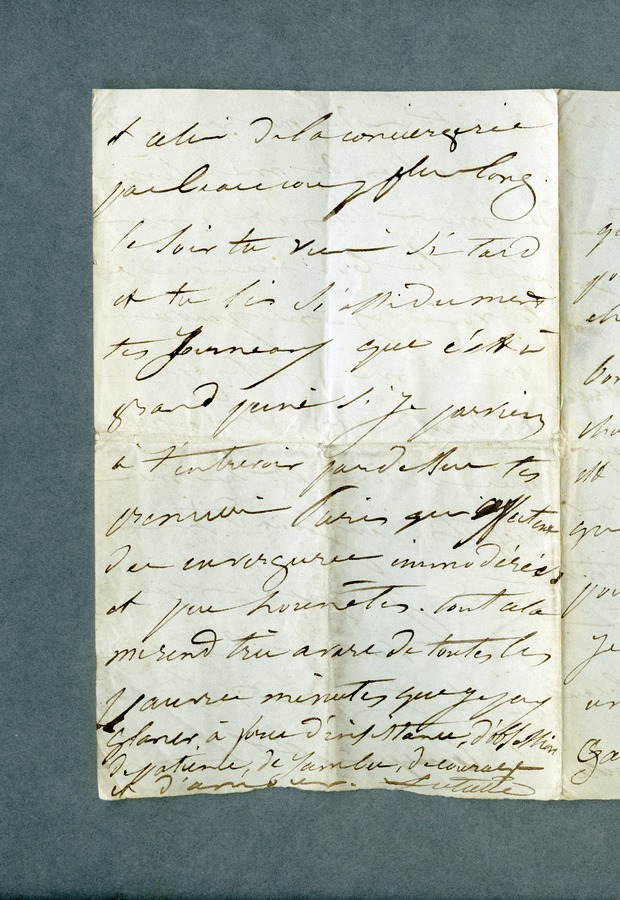 et celui de la conciergerie
par beaucoup plus long.
le soir tu viens si tard
et tu lis si assidument
tes journaux que c'est à
grand peine si je parviens
à t'entrevoir par dessus tes
premiers Paris qui affectent
des envergures immodérées
et peu honnêtes. tout cela
me rend très avare de toutes les
pauvres minutes que je puis
glaner à force d'insistance, d'obsession
de patience, de jambes, de courage
et d'amour.